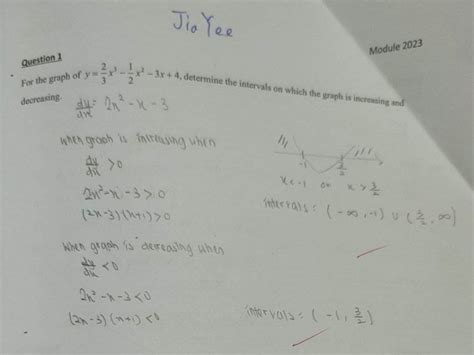 Jia Yee
Module 2023
Question 1
For the graph of y = 2/3 x³ − 1/2 x² − 3x + 4, determine the intervals on which the graph is increasing and
decreasing.
dy/dx = 2x² - x - 3
when graph is increasing when
dy/dx > 0
2x² - x - 3 > 0
(2x-3)(x+1) > 0
-1 3/2
x < -1 or x > 3/2
intervals : (-∞, -1) ∪ (3/2, ∞)
when graph is decreasing when
dy/dx < 0
2x² - x - 3 < 0
(2x-3)(x+1) < 0
intervals : (-1, 3/2)